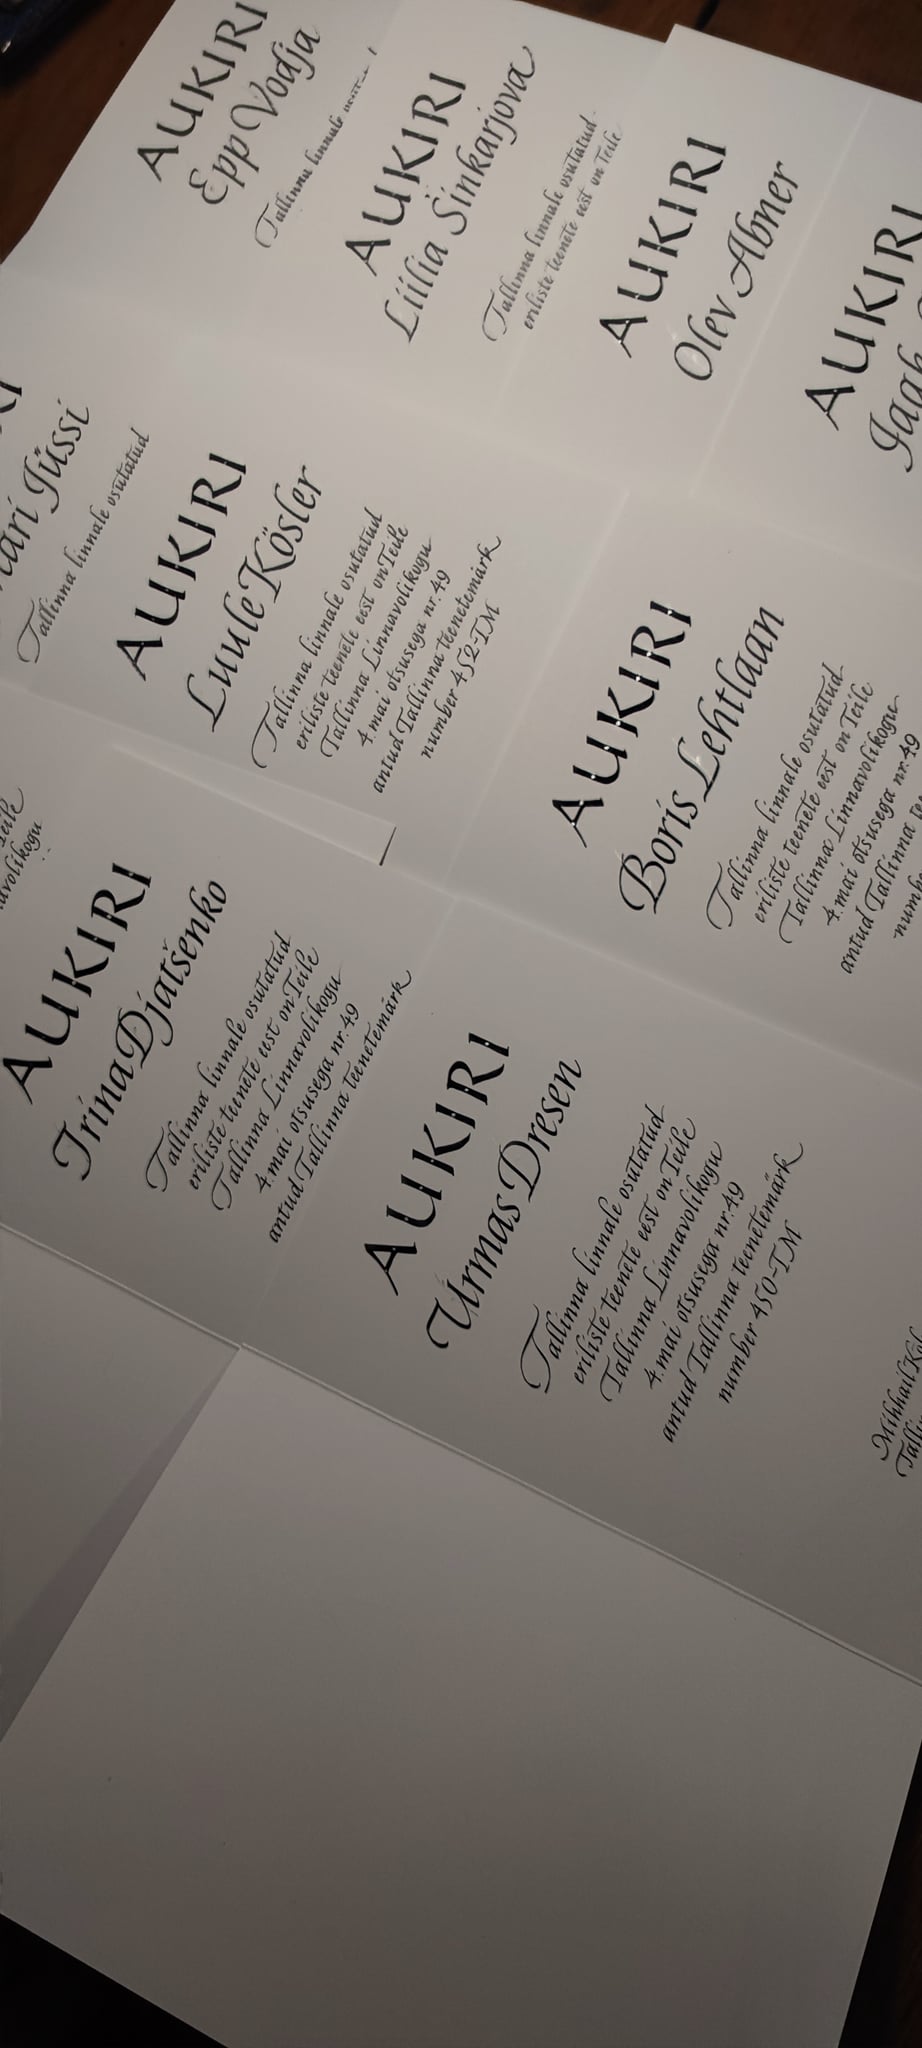 AUKIRI
Epp Vodja
Tallinna linnale
AUKIRI
Liilia Sinkarjova
Tallinna linnale osutatud
eriliste teenete eest on Teile
AUKIRI
Olev Abner
AUKIRI
Jaak
Jüssi
Tallinna linnale osutatud
AUKIRI
Luule Kösler
Tallinna linnale osutatud
eriliste teenete eest on Teile
Tallinna Linnavolikogu
4. mai otsusega nr. 49
antud Tallinna teenetemärk
number 452-TM
AUKIRI
Boris Lehtlaan
Tallinna linnale osutatud
eriliste teenete eest on Teile
Tallinna Linnavolikogu
4. mai otsusega nr. 49
antud Tallinna
AUKIRI
Irina Djatšenko
Tallinna linnale osutatud
eriliste teenete eest on Teile
Tallinna Linnavolikogu
4. mai otsusega nr. 49
antud Tallinna teenetemärk
AUKIRI
Urmas Dresen
Tallinna linnale osutatud
eriliste teenete eest on Teile
Tallinna Linnavolikogu
4. mai otsusega nr. 49
antud Tallinna teenetemärk
number 450-TM
Mihhail